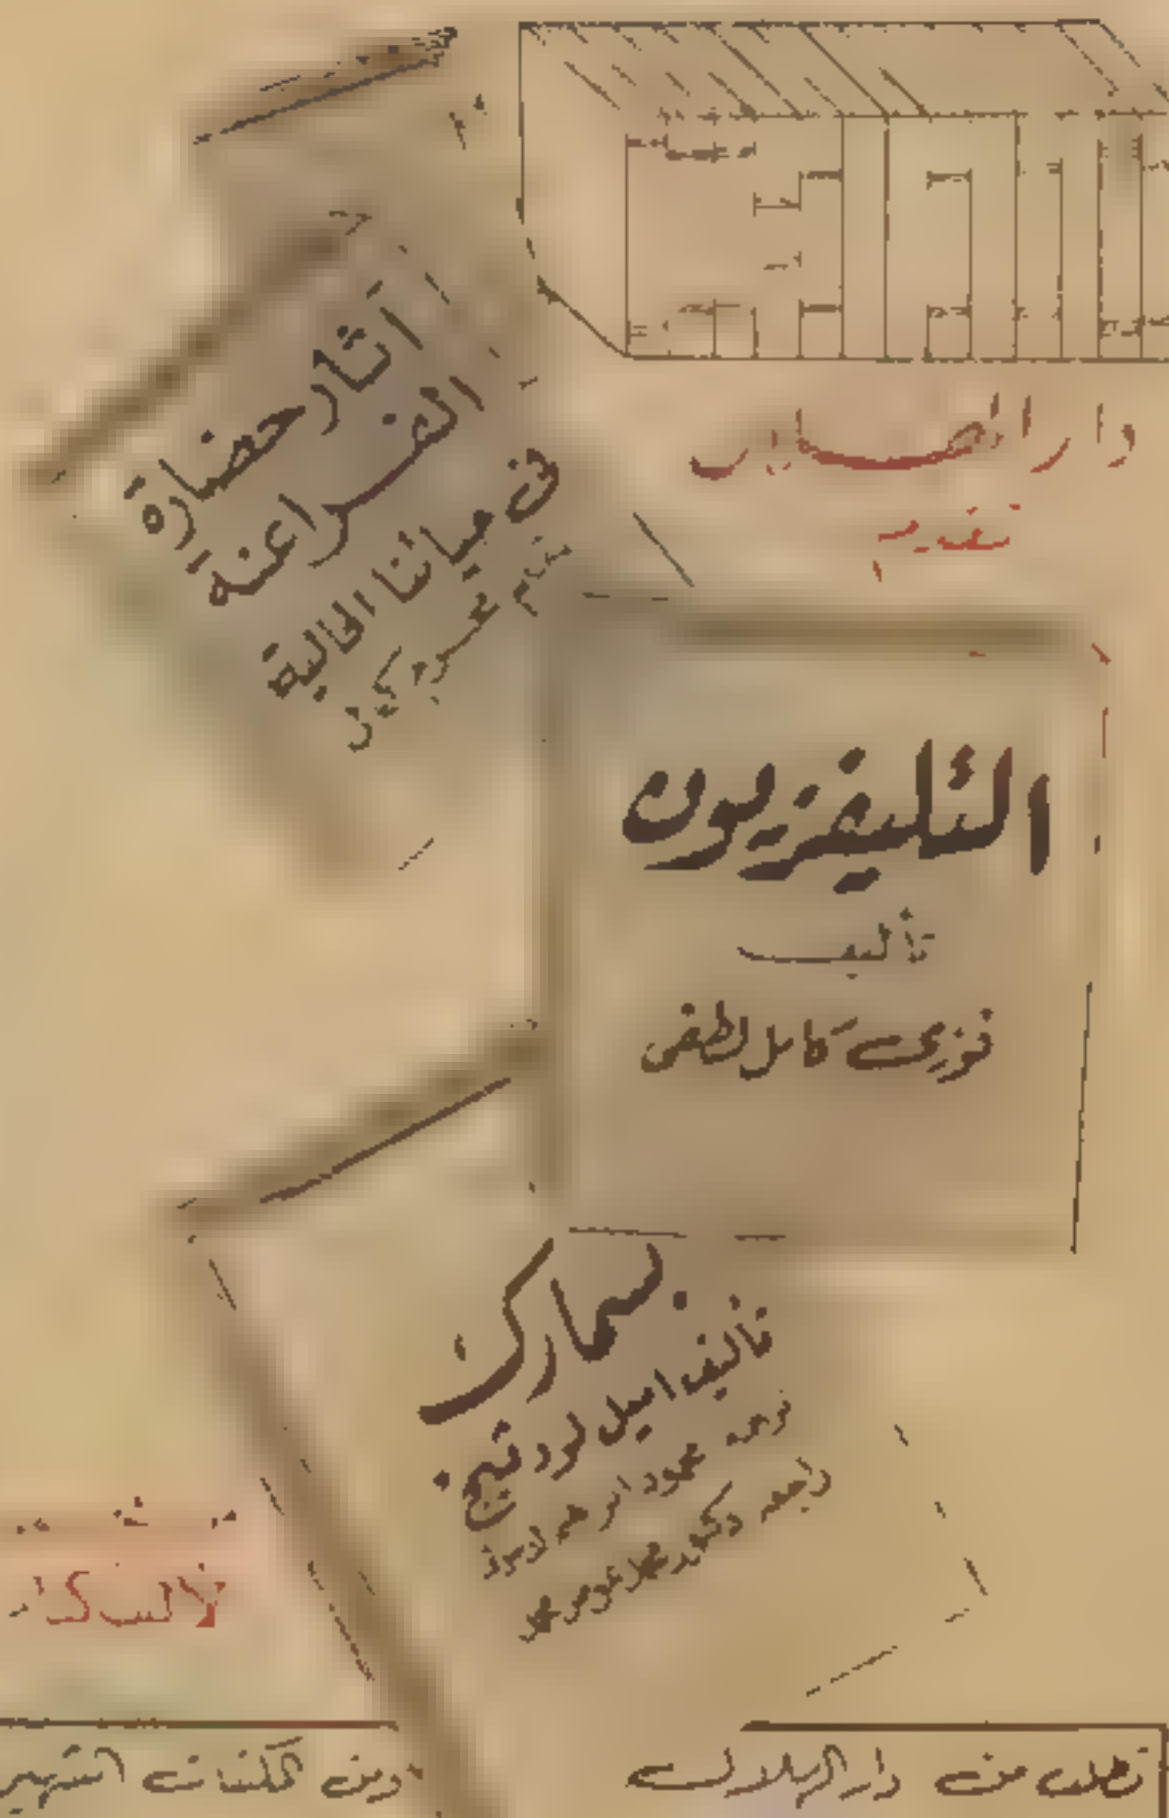 دار الهلال
تقدم
آثار حضارة
الفراعنة
فى حياتنا الحالية
التليفزيون
تأليف
فوزى كامل لطفى
بسمارك
تأليف اميل لودفيج
ترجمة محمود ابراهيم
راجعه دكتور محمد عوض محمد
تطلب من دار الهلال
ومن المكتبات الشهيرة